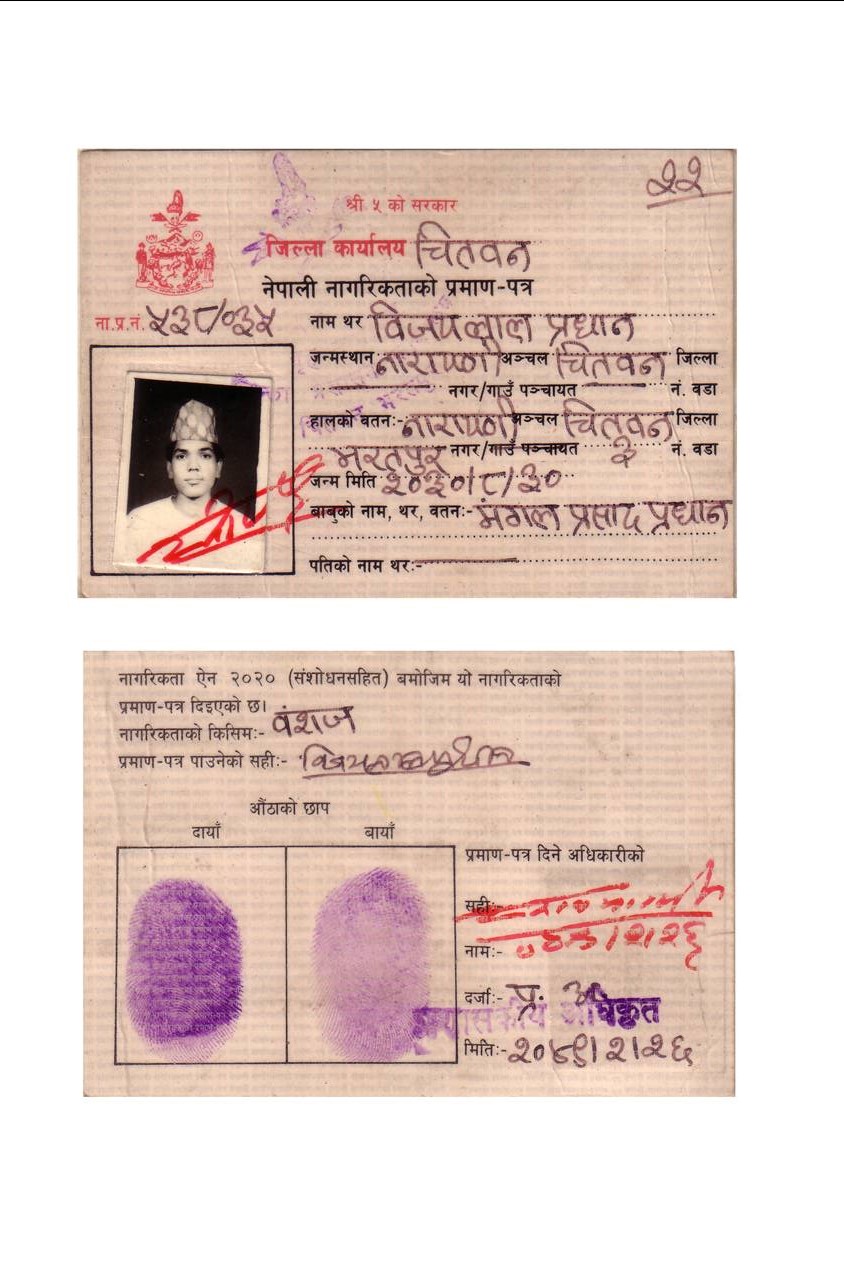 २२
श्री ५ को सरकार
जिल्ला कार्यालय चितवन
नेपाली नागरिकताको प्रमाण-पत्र
ना.प्र.नं. ५३८/०३५
नाम थर विजयलाल प्रधान
जन्मस्थान नारायणी अञ्चल चितवन जिल्ला
नगर/गाउँ पञ्चायत नं. वडा
हालको वतनः- नारायणी अञ्चल चितवन जिल्ला
भरतपुर नगर/गाउँ पञ्चायत ३ नं. वडा
जन्म मिति २०३०/८/३०
बाबुको नाम, थर, वतनः- मंगल प्रसाद प्रधान
पतिको नाम थरः-
नागरिकता ऐन २०२० (संशोधनसहित) बमोजिम यो नागरिकताको
प्रमाण-पत्र दिइएको छ।
नागरिकताको किसिमः- वंशज
प्रमाण-पत्र पाउनेको सहीः-
औंठाको छाप
दायाँ बायाँ
प्रमाण-पत्र दिने अधिकारीको
सहीः-
नामः-
दर्जाः- प्र. अ.
प्रशासकीय अधिकृत
मितिः- २०४९।२।२६